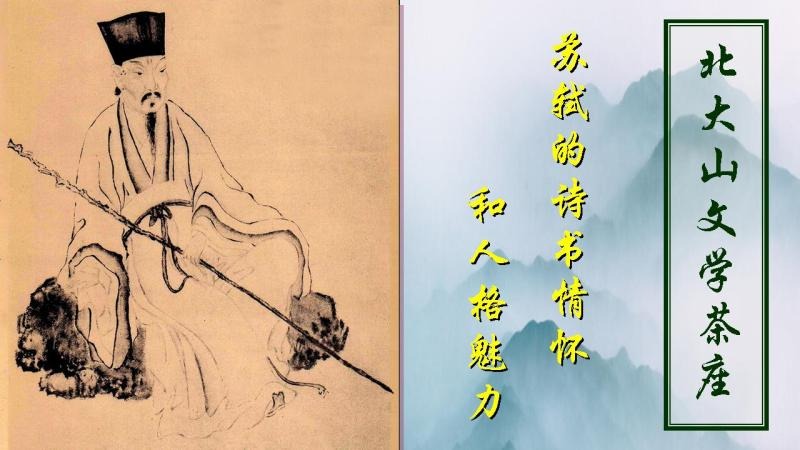 北大山文学茶座
苏轼的诗书情怀
和人格魅力